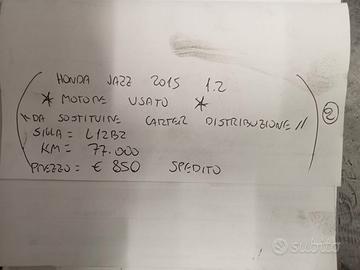 HONDA JAZZ 2015 1.2
* MOTORE USATO *
"DA SOSTITUIRE CARTER DISTRIBUZIONE"
SIGLA = L12B2
KM = 77.000
PREZZO = € 850 SPEDITO
2
subito